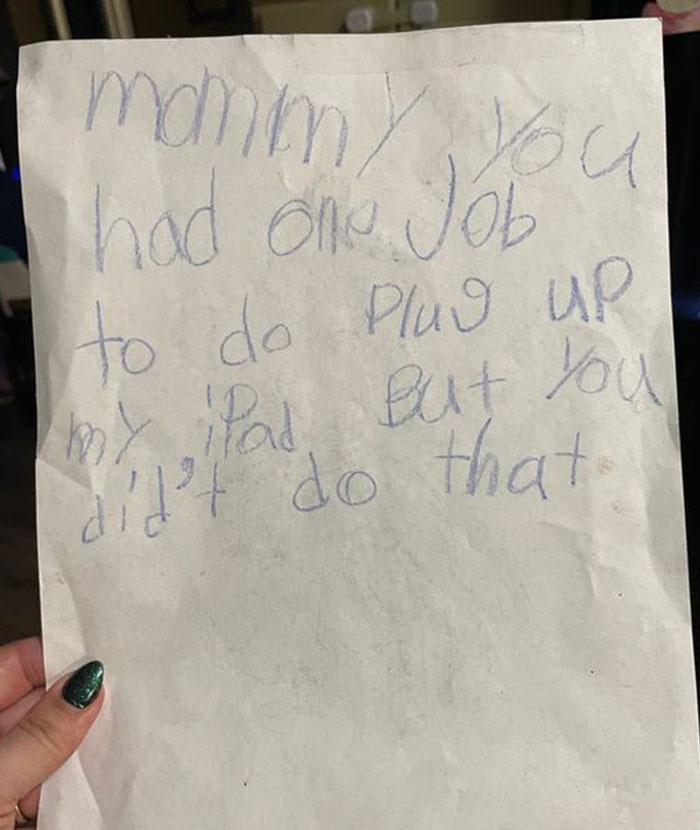 mommy you
had one Job
to do Plug uP
my iPad But you
did't do that